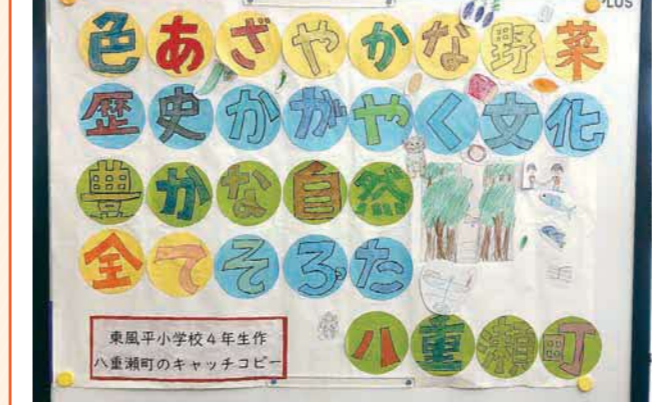 LUS
色あざやかな野菜
歴史かがやく文化
豊かな自然
全てそろった
八重瀬町
東風平小学校4年生作
八重瀬町のキャッチコピー